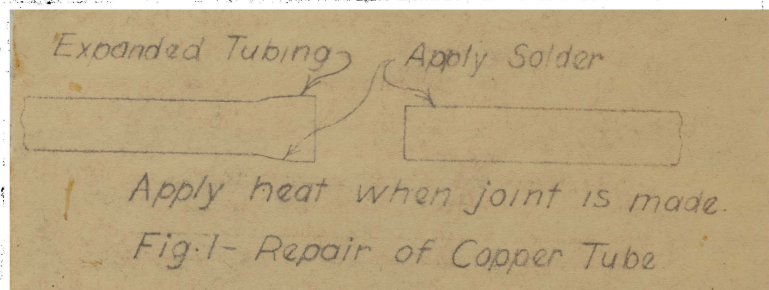 Expanded Tubing
Apply Solder
Apply heat when joint is made.
Fig. 1- Repair of Copper Tube